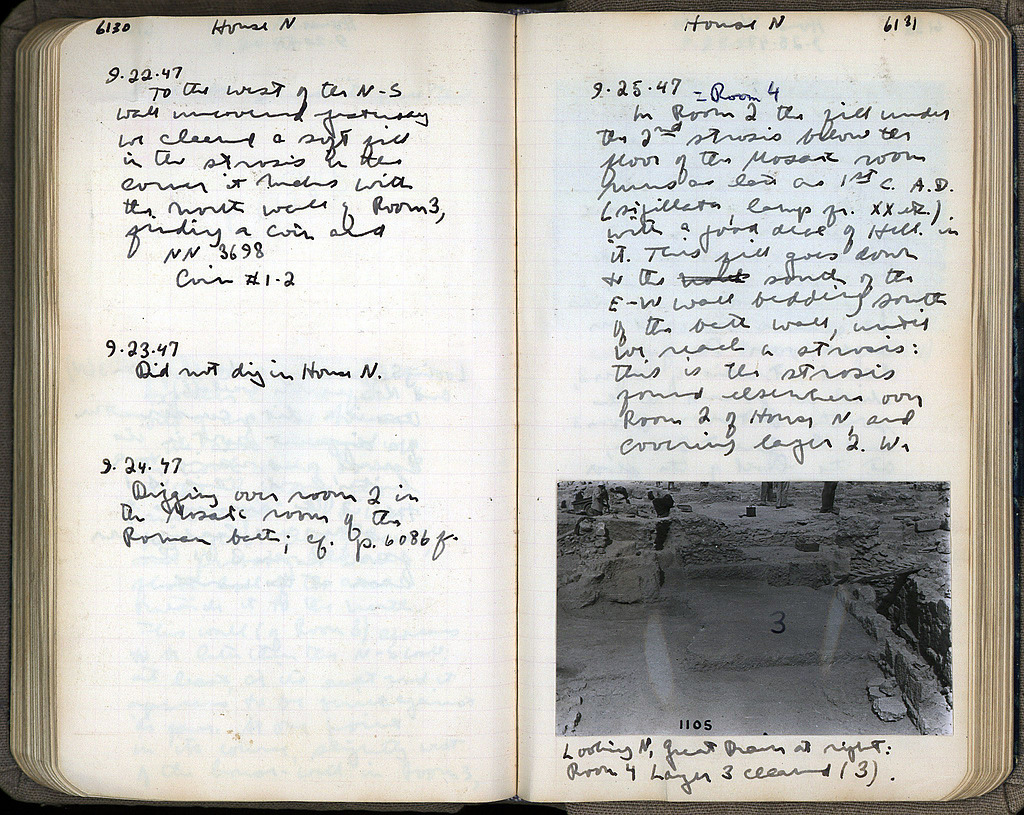 6130 House N
9.22.47
To the west of the N-S
wall uncovered yesterday
we cleared a soft fill
in the strosis in the
corner it makes with
the north wall of Room 3,
finding a coin and
NN 3698
Coin #1-2
9.23.47
Did not dig in House N.
9.24.47
Digging over room 2 in
the Mosaic room of the
Roman bath; cf. p. 6086 f.
House N 6131
9.25.47 = Room 4
In Room 2 the fill under
the 2nd strosis below the
floor of the Mosaic room
runs as late as 1st C. A.D.
(sigillata, lamp fr. XX etc.)
with a good deal of Hell. in
it. This fill goes down
to the south of the
E-W wall bedding south
of the bath wall, until
we reach a strosis:
this is the strosis
found elsewhere over
Room 2 of House N, and
covering layer 2. We
3
1105
Looking N, Great Drain at right:
Room 4 Layer 3 cleared (3).